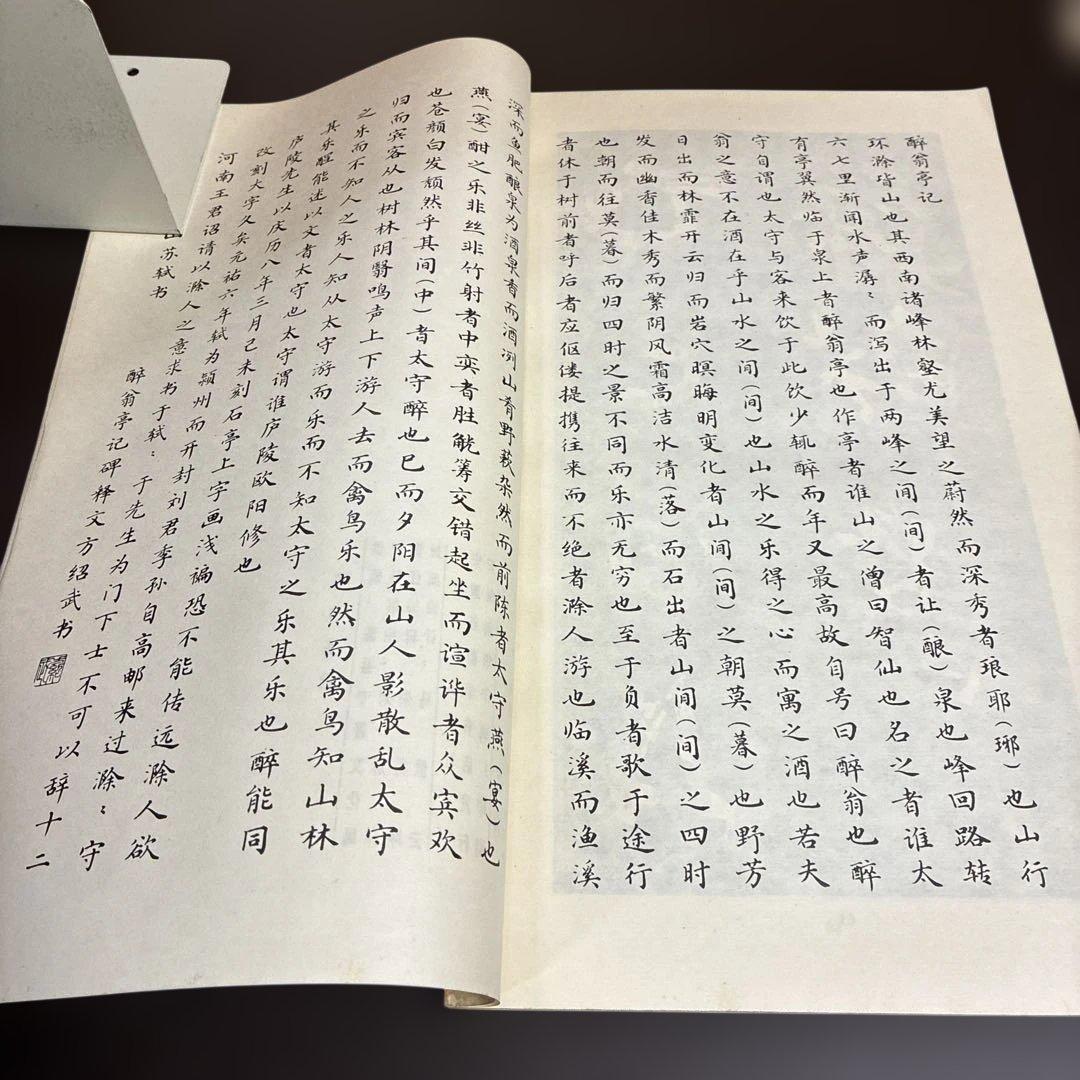 醉翁亭记
环滁皆山也其西南诸峰林壑尤美望之蔚然而深秀者琅耶（琊）也山行
六七里渐闻水声潺〻而泻出于两峰之间（间）者让（酿）泉也峰回路转
有亭翼然临于泉上者醉翁亭也作亭者谁山之僧曰智仙也名之者谁太
守自谓也太守与客来饮于此饮少辄醉而年又最高故自号曰醉翁也醉
翁之意不在酒在乎山水之间（间）也山水之乐得之心而寓之酒也若夫
日出而林霏开云归而岩穴暝晦明变化者山间（间）之朝莫（暮）也野芳
发而幽香佳木秀而繁阴风霜高洁水清（落）而石出者山间（间）之四时
也朝而往莫（暮）而归四时之景不同而乐亦无穷也至于负者歌于途行
者休于树前者呼后者应伛偻提携往来而不绝者滁人游也临溪而渔溪
深而鱼肥酿泉为酒泉香而酒冽山肴野蔌杂然而前陈者太守燕（宴）也
燕（宴）酣之乐非丝非竹射者中奕者胜觥筹交错起坐而諠哗者众宾欢
也苍颜白发颓然乎其间（中）者太守醉也已而夕阳在山人影散乱太守
归而宾客从也树林阴翳鸣声上下游人去而禽鸟乐也然而禽鸟知山林
之乐而不知人之乐人知从太守游而乐而不知太守之乐其乐也醉能同
其乐醒能述以文者太守也太守谓谁庐陵欧阳修也
庐陵先生以庆历八年三月己未刻石亭上字画浅褊恐不能传远滁人欲
改刻大字久矣元祐六年轼为颍州而开封刘君季孙自高邮来过滁〻守
河南王君诏请以滁人之意求书于轼〻于先生为门下士不可以辞十二
苏轼书
醉翁亭记碑释文方绍武书